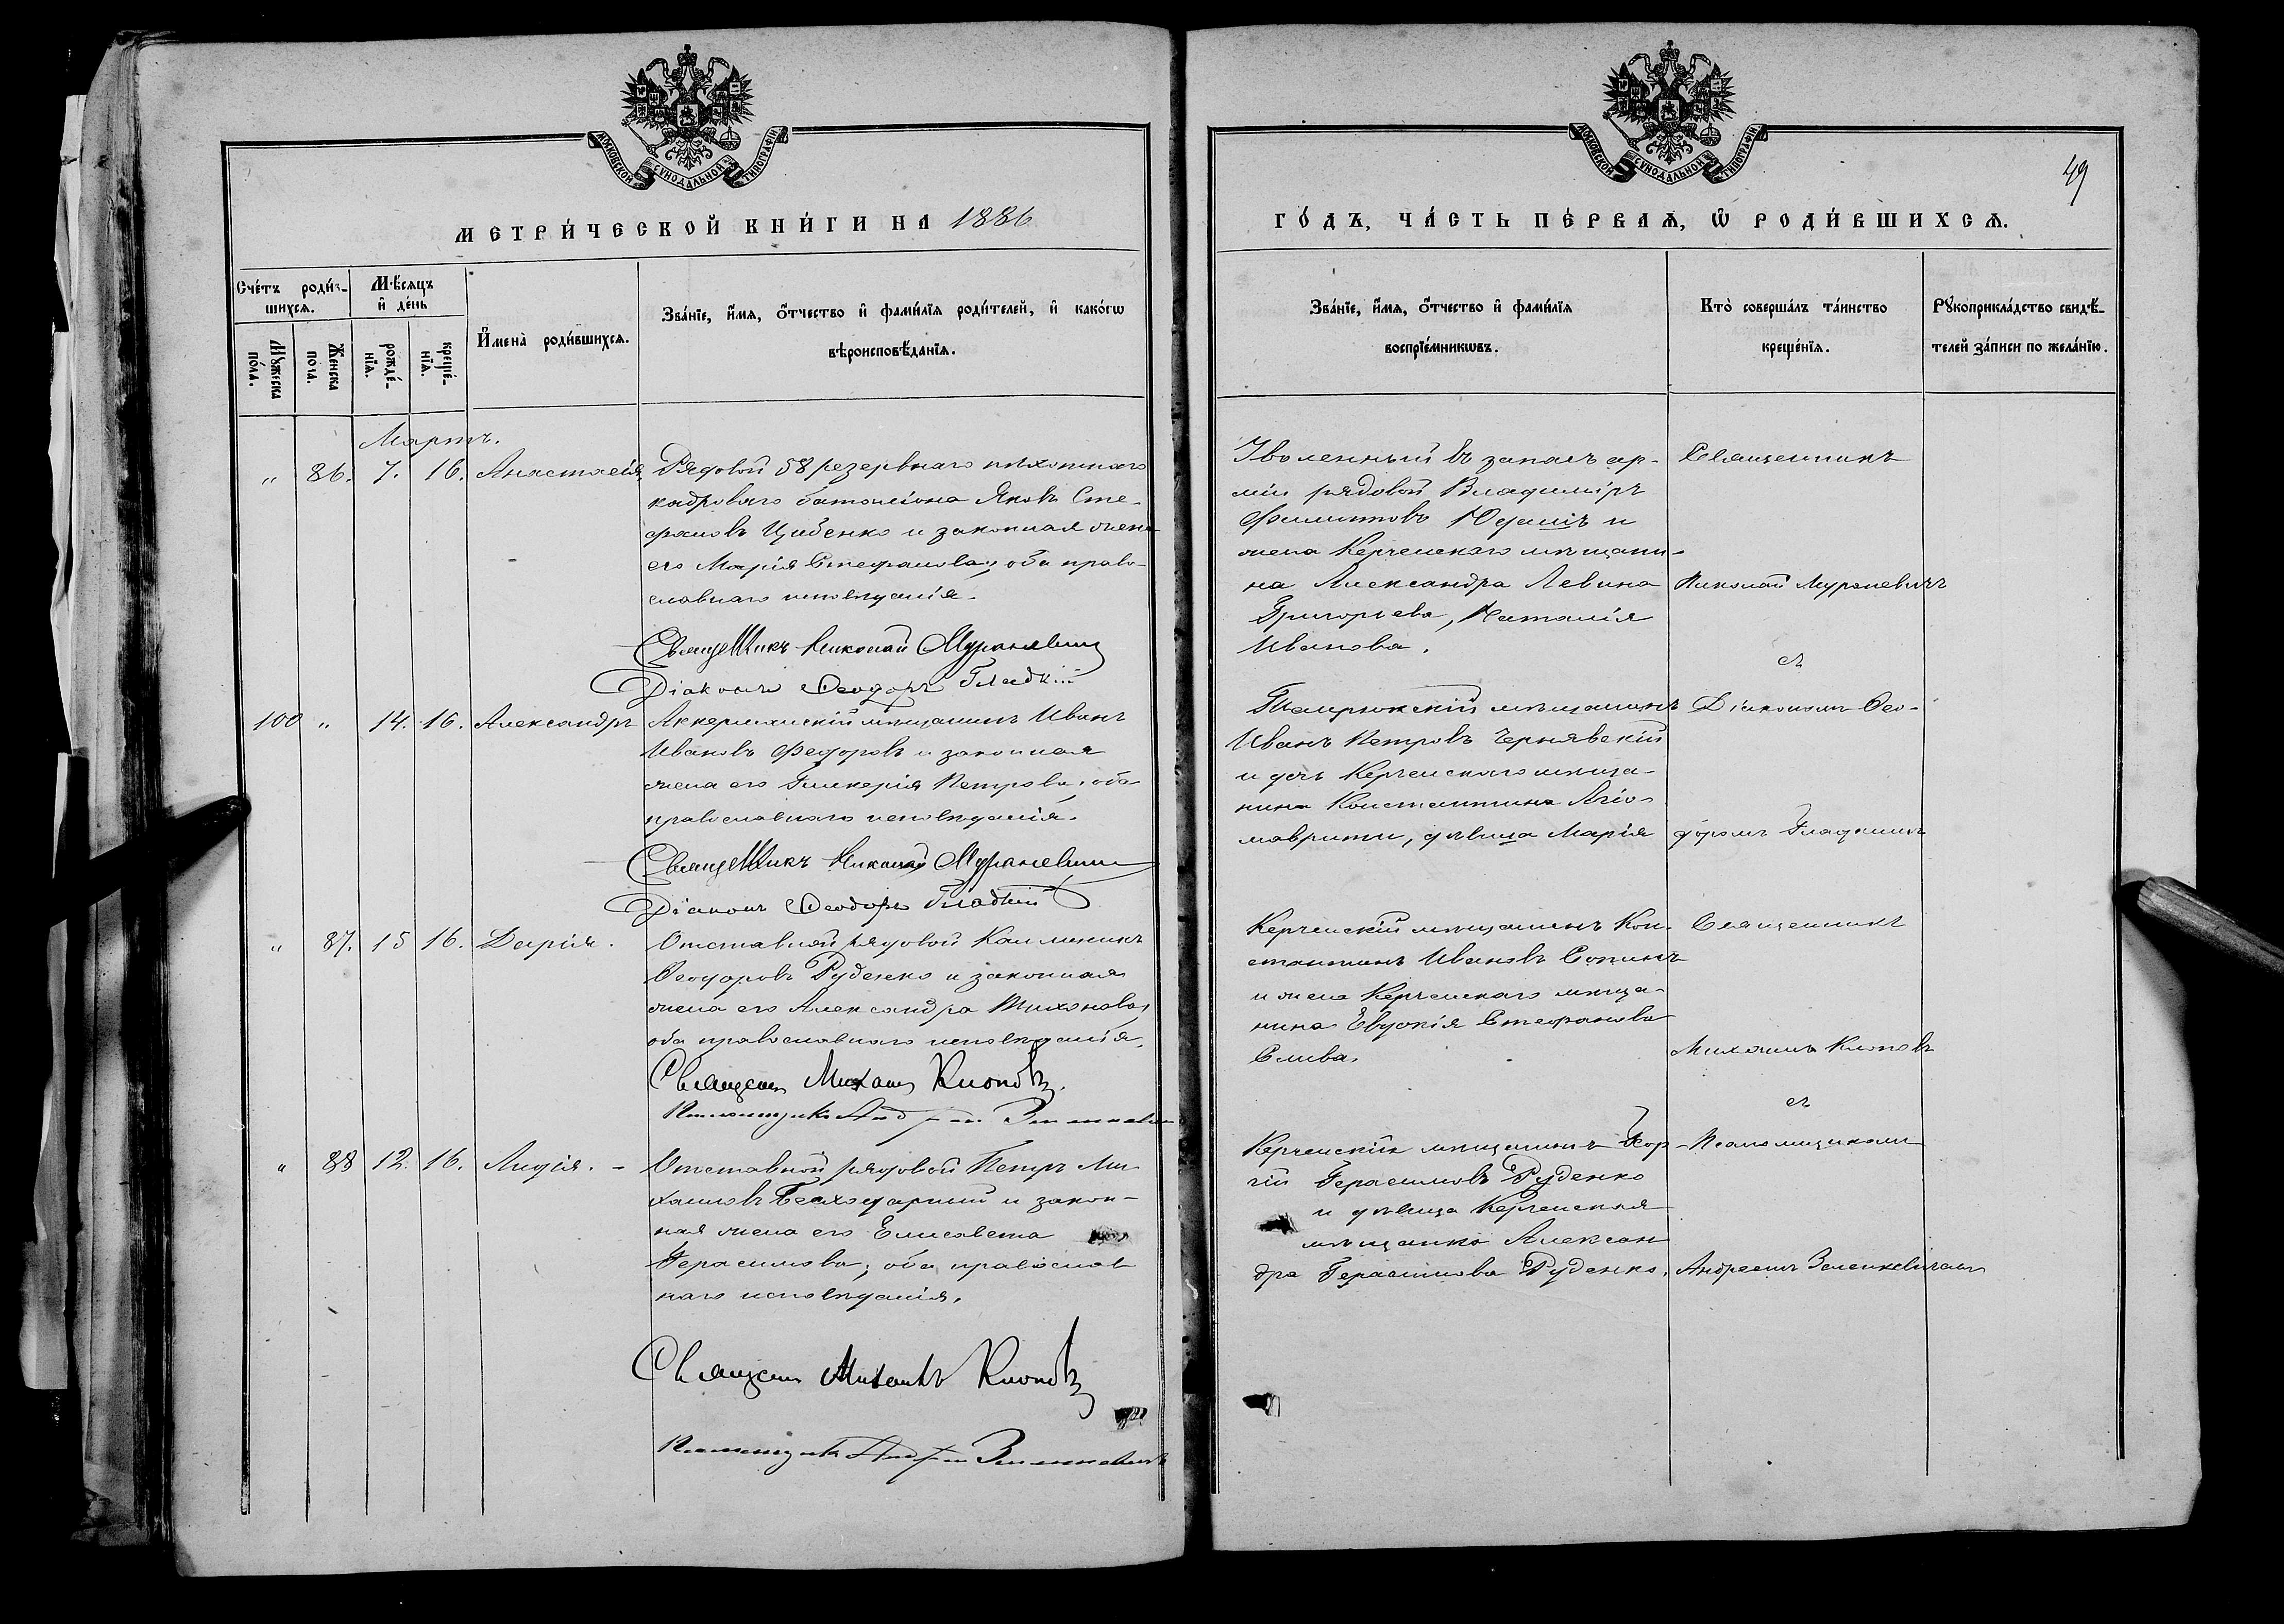 МОСКОВСКОЙ СУНОДАЛЬНОЙ ТИПОГРАФІИ
МЕТРИ́ЧЕСКОЙ КНИ́ГИ НА 1886
Сче́тъ роди́вшихся.
Мѣ́сяцъ и҆ де́нь
Мꙋ́жеска по́ла.
Же́нска по́ла.
рожде́нїѧ.
креще́нїѧ.
И҆мена̀ роди́вшихсѧ.
Зва́нїе, и҆́мѧ, ѻ҆́тчество и҆ фами́лїѧ роди́телей, и҆ како́гѡ
вѣроисповѣ́данїѧ.
Мартъ.
„ 86. 7. 16. Анастасія,
Рядовой 58 резервнаго пѣхотнаго
кадроваго баталіона Яковъ Сте-
фановъ Цибенко и законная жена
его Марія Стефанова, оба право-
славнаго исповѣданія.
Священникъ Николай Мураневичъ
Діаконъ Ѳеодоръ Гладкій
100 „ 14. 16. Александръ
Аккерманскій мѣщанинъ Иванъ
Ивановъ Федоровъ и законная
жена его Гликерія Петрова, оба
православнаго исповѣданія.
Священникъ Николай Мураневичъ
Діаконъ Ѳеодоръ Гладкій
„ 87. 15 16. Дарія.
Отставной рядовой Каллиникъ
Ѳеодоровъ Руденко и законная
жена его Александра Тихонова,
оба православнаго исповѣданія.
Священ Михаилъ Клоповъ.
Псаломщикъ Андрей Зеленкевичъ
„ 88 12. 16. Лидія. -
Отставной рядовой Петръ Ми-
хаиловъ и закон-
ная жена его Елисавета
Герасимова, оба православ
наго исповѣданія.
Священ Михаилъ Клоповъ
Псаломщикъ Андрей Зеленкевичъ
МОСКОВСКОЙ СУНОДАЛЬНОЙ ТИПОГРАФІИ
49
ГО́ДЪ, ЧА́СТЬ ПЕ́РВАѦ, Ѡ҆ РОДИ́ВШИХСѦ.
Зва́нїе, и҆́мѧ, ѻ҆́тчество и҆ фами́лїѧ
воспрїе́мникѡвъ.
Кто̀ соверша́лъ та́инство
креще́нїѧ.
Рꙋкоприкла́дство свидѣ́-
телей за́писи по жела́нїю.
Уволенный въ запасъ ар-
міи рядовой Владиміръ
Филиповъ и
жена Керченскаго мѣщани-
на Александра Левина
Григорьева, Наталія
Иванова.
Священникъ
Николай Мураневичъ
съ
Темрюкскій мѣщанинъ
Иванъ Петровъ Чернявскій
и дочь Керченскаго мѣща-
нина Константина Агіо-
маврити, дѣвица Марія
Діакономъ Ѳео-
доромъ Гладкимъ
Керченскій мѣщанинъ Кон-
стантинъ Ивановъ Сопинъ
и жена Керченскаго мѣща-
нина Евдокія Стефанова
Слива.
Священникъ
Михаилъ Клоповъ
съ
Керченскій мѣщанинъ Геор-
гій Герасимовъ Руденко
и дѣвица Керченская
мѣщанка Алексан
дра Герасимова Руденко.
Псаломщикомъ
Андреемъ Зеленкевичемъ